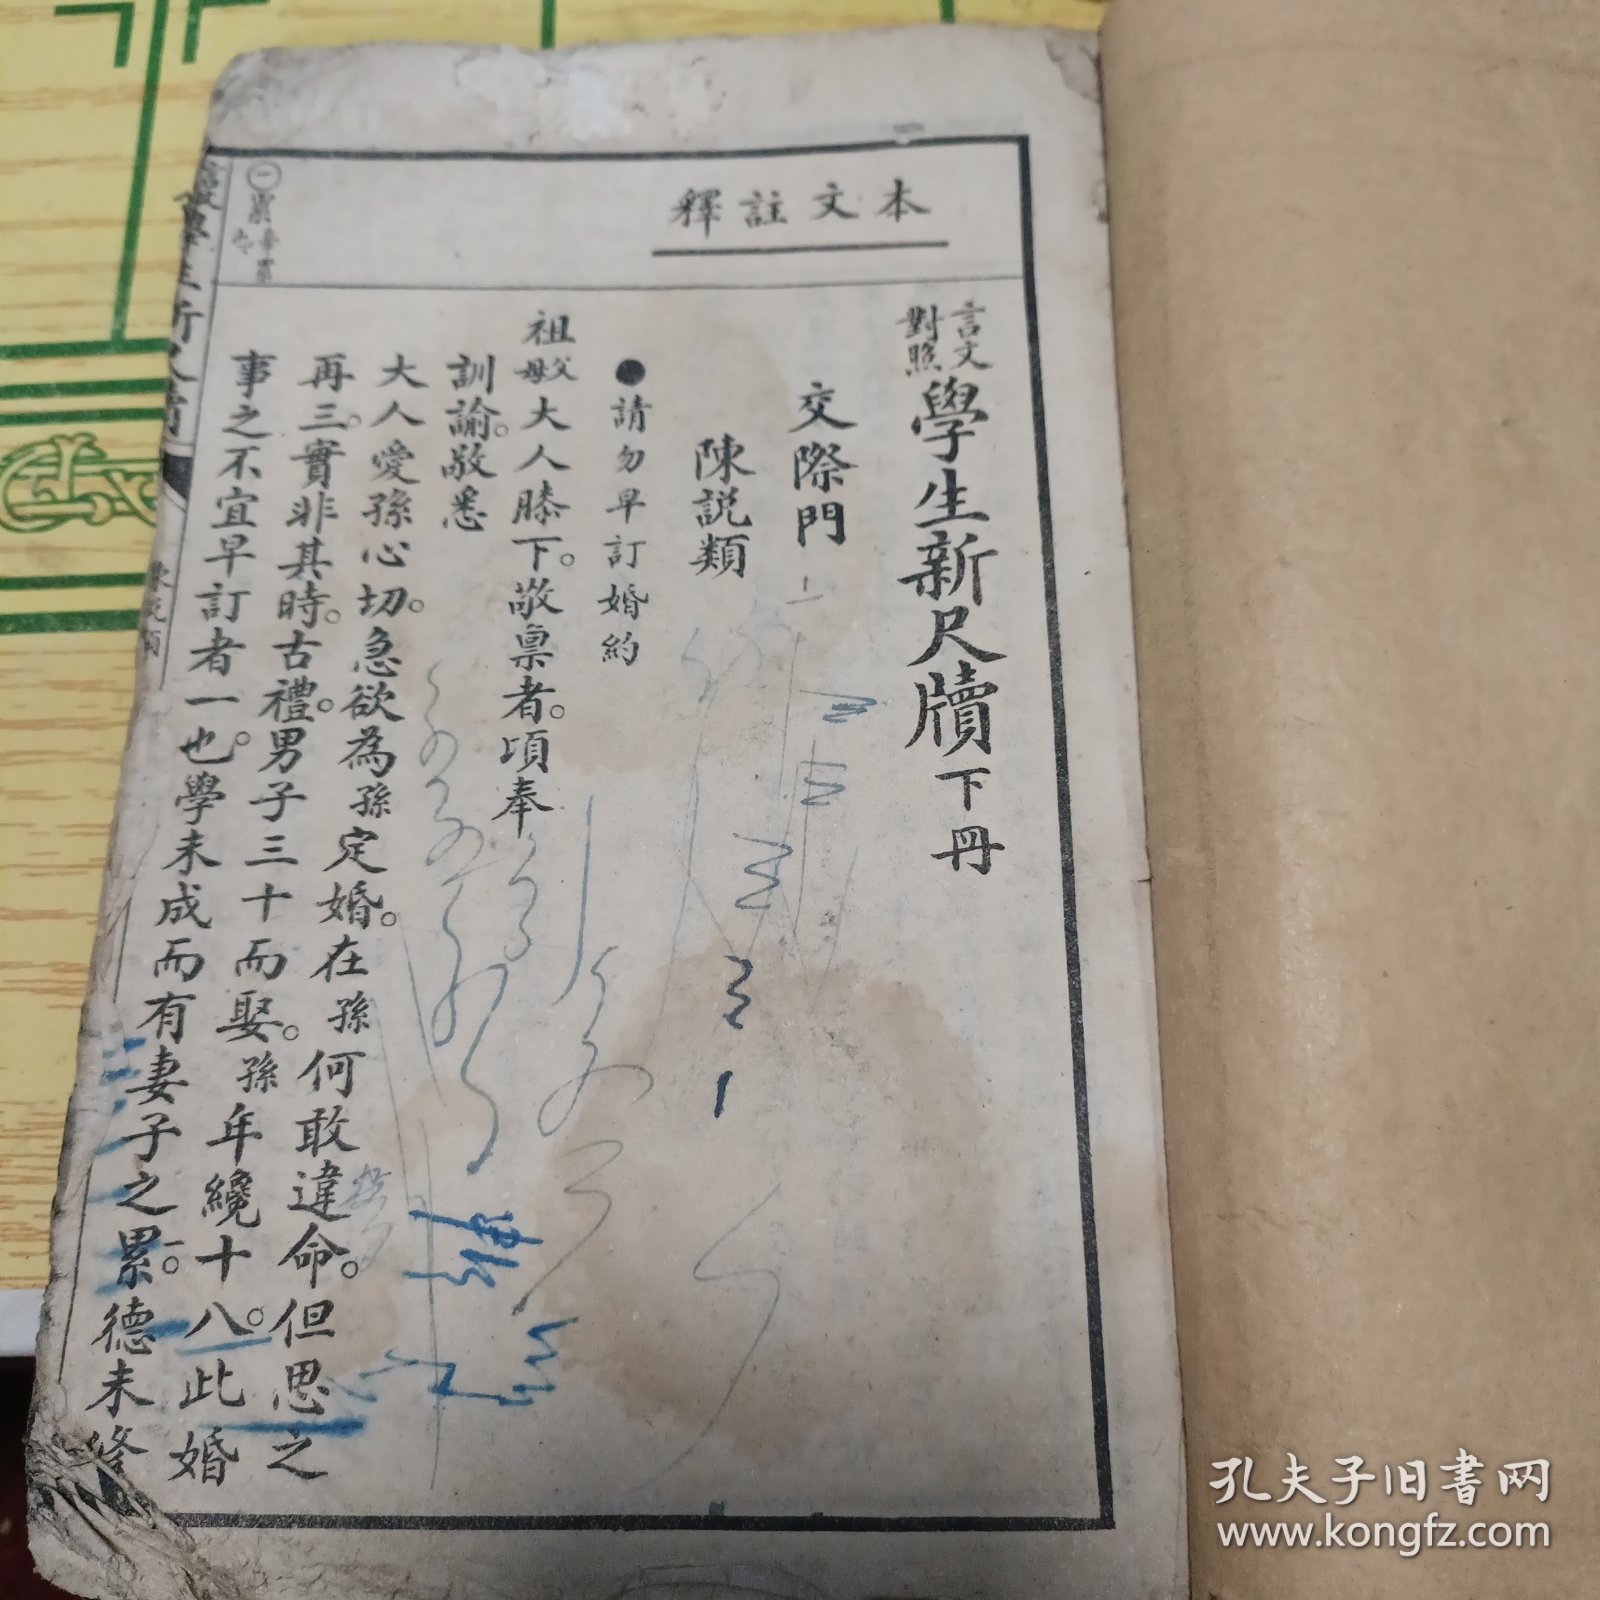 本文註釋
言文對照學生新尺牘下冊
交際門
陳説類
●請勿早訂婚約
祖父母大人膝下。敬稟者。頃奉
訓諭。敬悉
大人愛孫心切。急欲為孫定婚。在孫何敢違命。但思之
再三。實非其時。古禮。男子三十而娶。孫年纔十八。此婚
事之不宜早訂者一也。學未成而有妻子之累。一德未修
㊀累
學生新尺牘
陳説類
孔夫子旧书网
www.kongfz.com